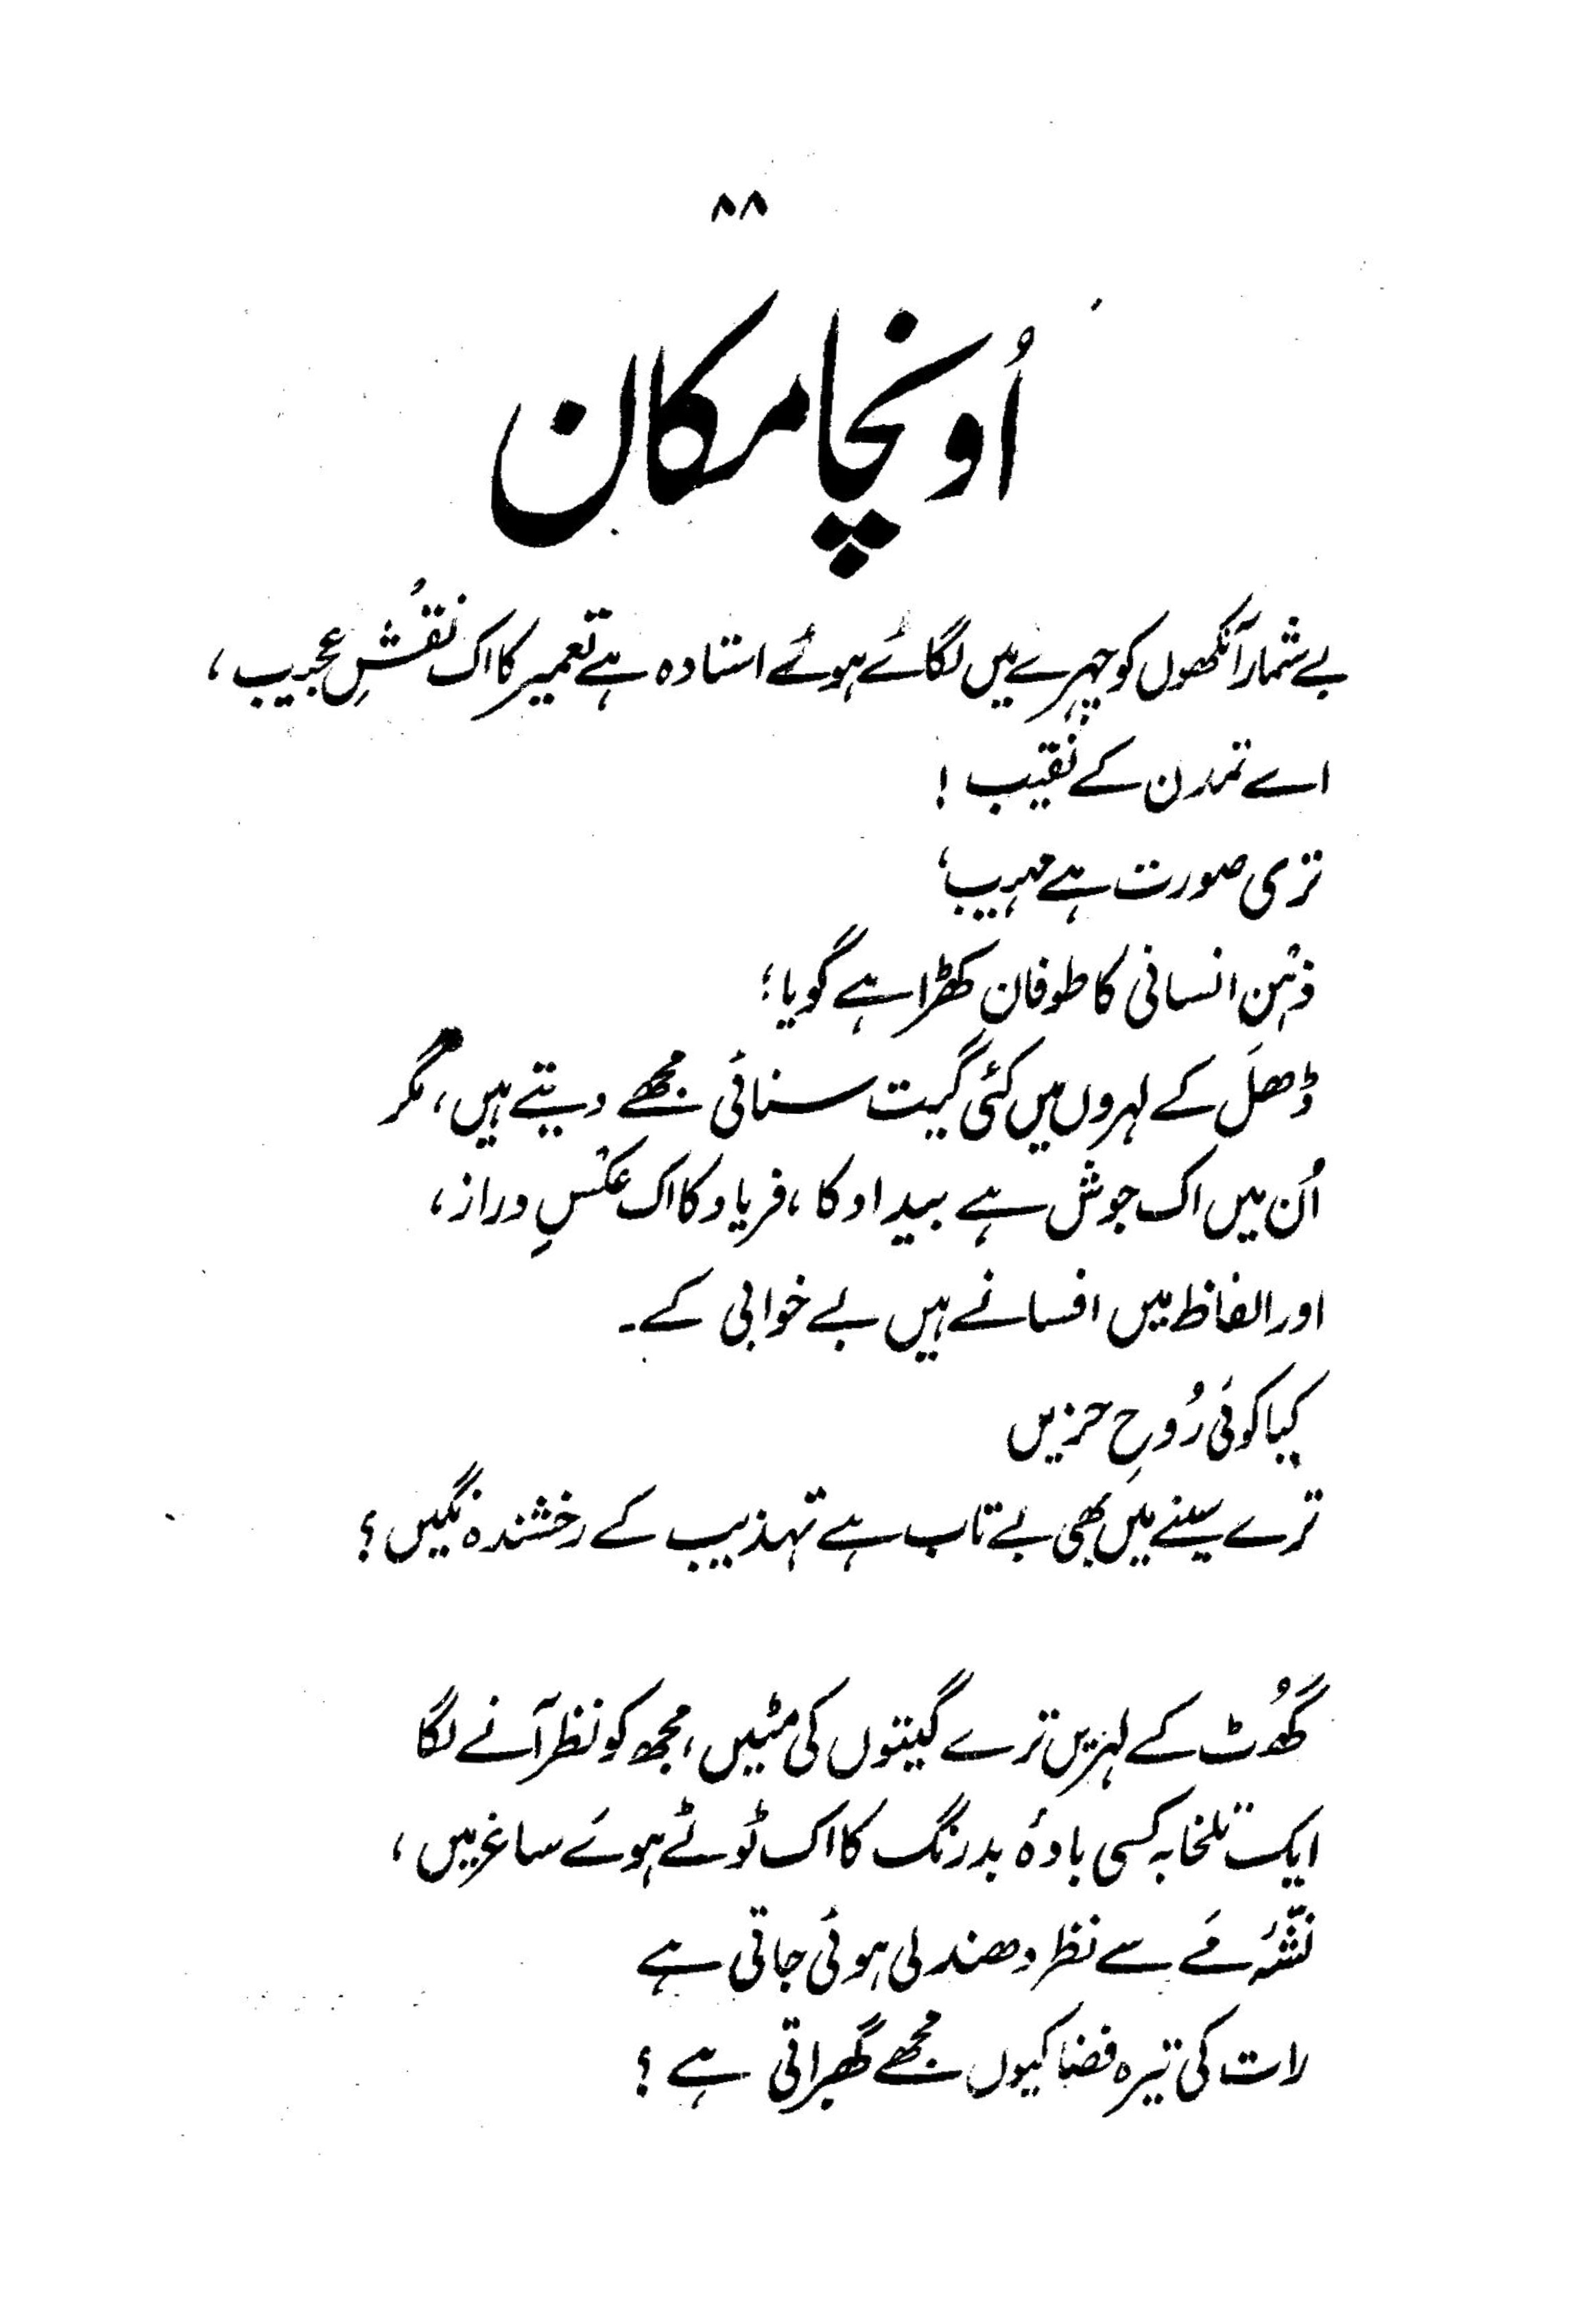 ۸۸
اُونچا مکان
بے شمار آنکھوں کو چہرے میں لگائے ہوئے استادہ ہے تعمیر کا اک نقشِ عجیب،
اے تمدن کے نقیب!
تری صورت ہے مہیب،
ذہنِ انسانی کا طوفان کھڑا ہے گویا؛
ڈھل کے لہروں میں کئی گیت سنائی مجھے دیتے ہیں، مگر
اُن میں اک جوش ہے بیداد کا، فریاد کا اک عکسِ دراز،
اور الفاظ میں افسانے ہیں بے خوابی کے۔
کیا کوئی رُوحِ حزیں
ترے سینے میں بھی بے تاب ہے تہذیب کے رخشندہ نگیں؟
گھُٹ کے لہریں ترے گیتوں کی مٹیں، مجھ کو نظر آنے لگا
ایک تلخابہ کسی بادۂ بد رنگ کا اک ٹوٹے ہوئے ساغر میں،
نشّۂ مَے سے نظر دھندلی ہوئی جاتی ہے
رات کی تیرہ فضا کیوں مجھے گھبراتی ہے؟